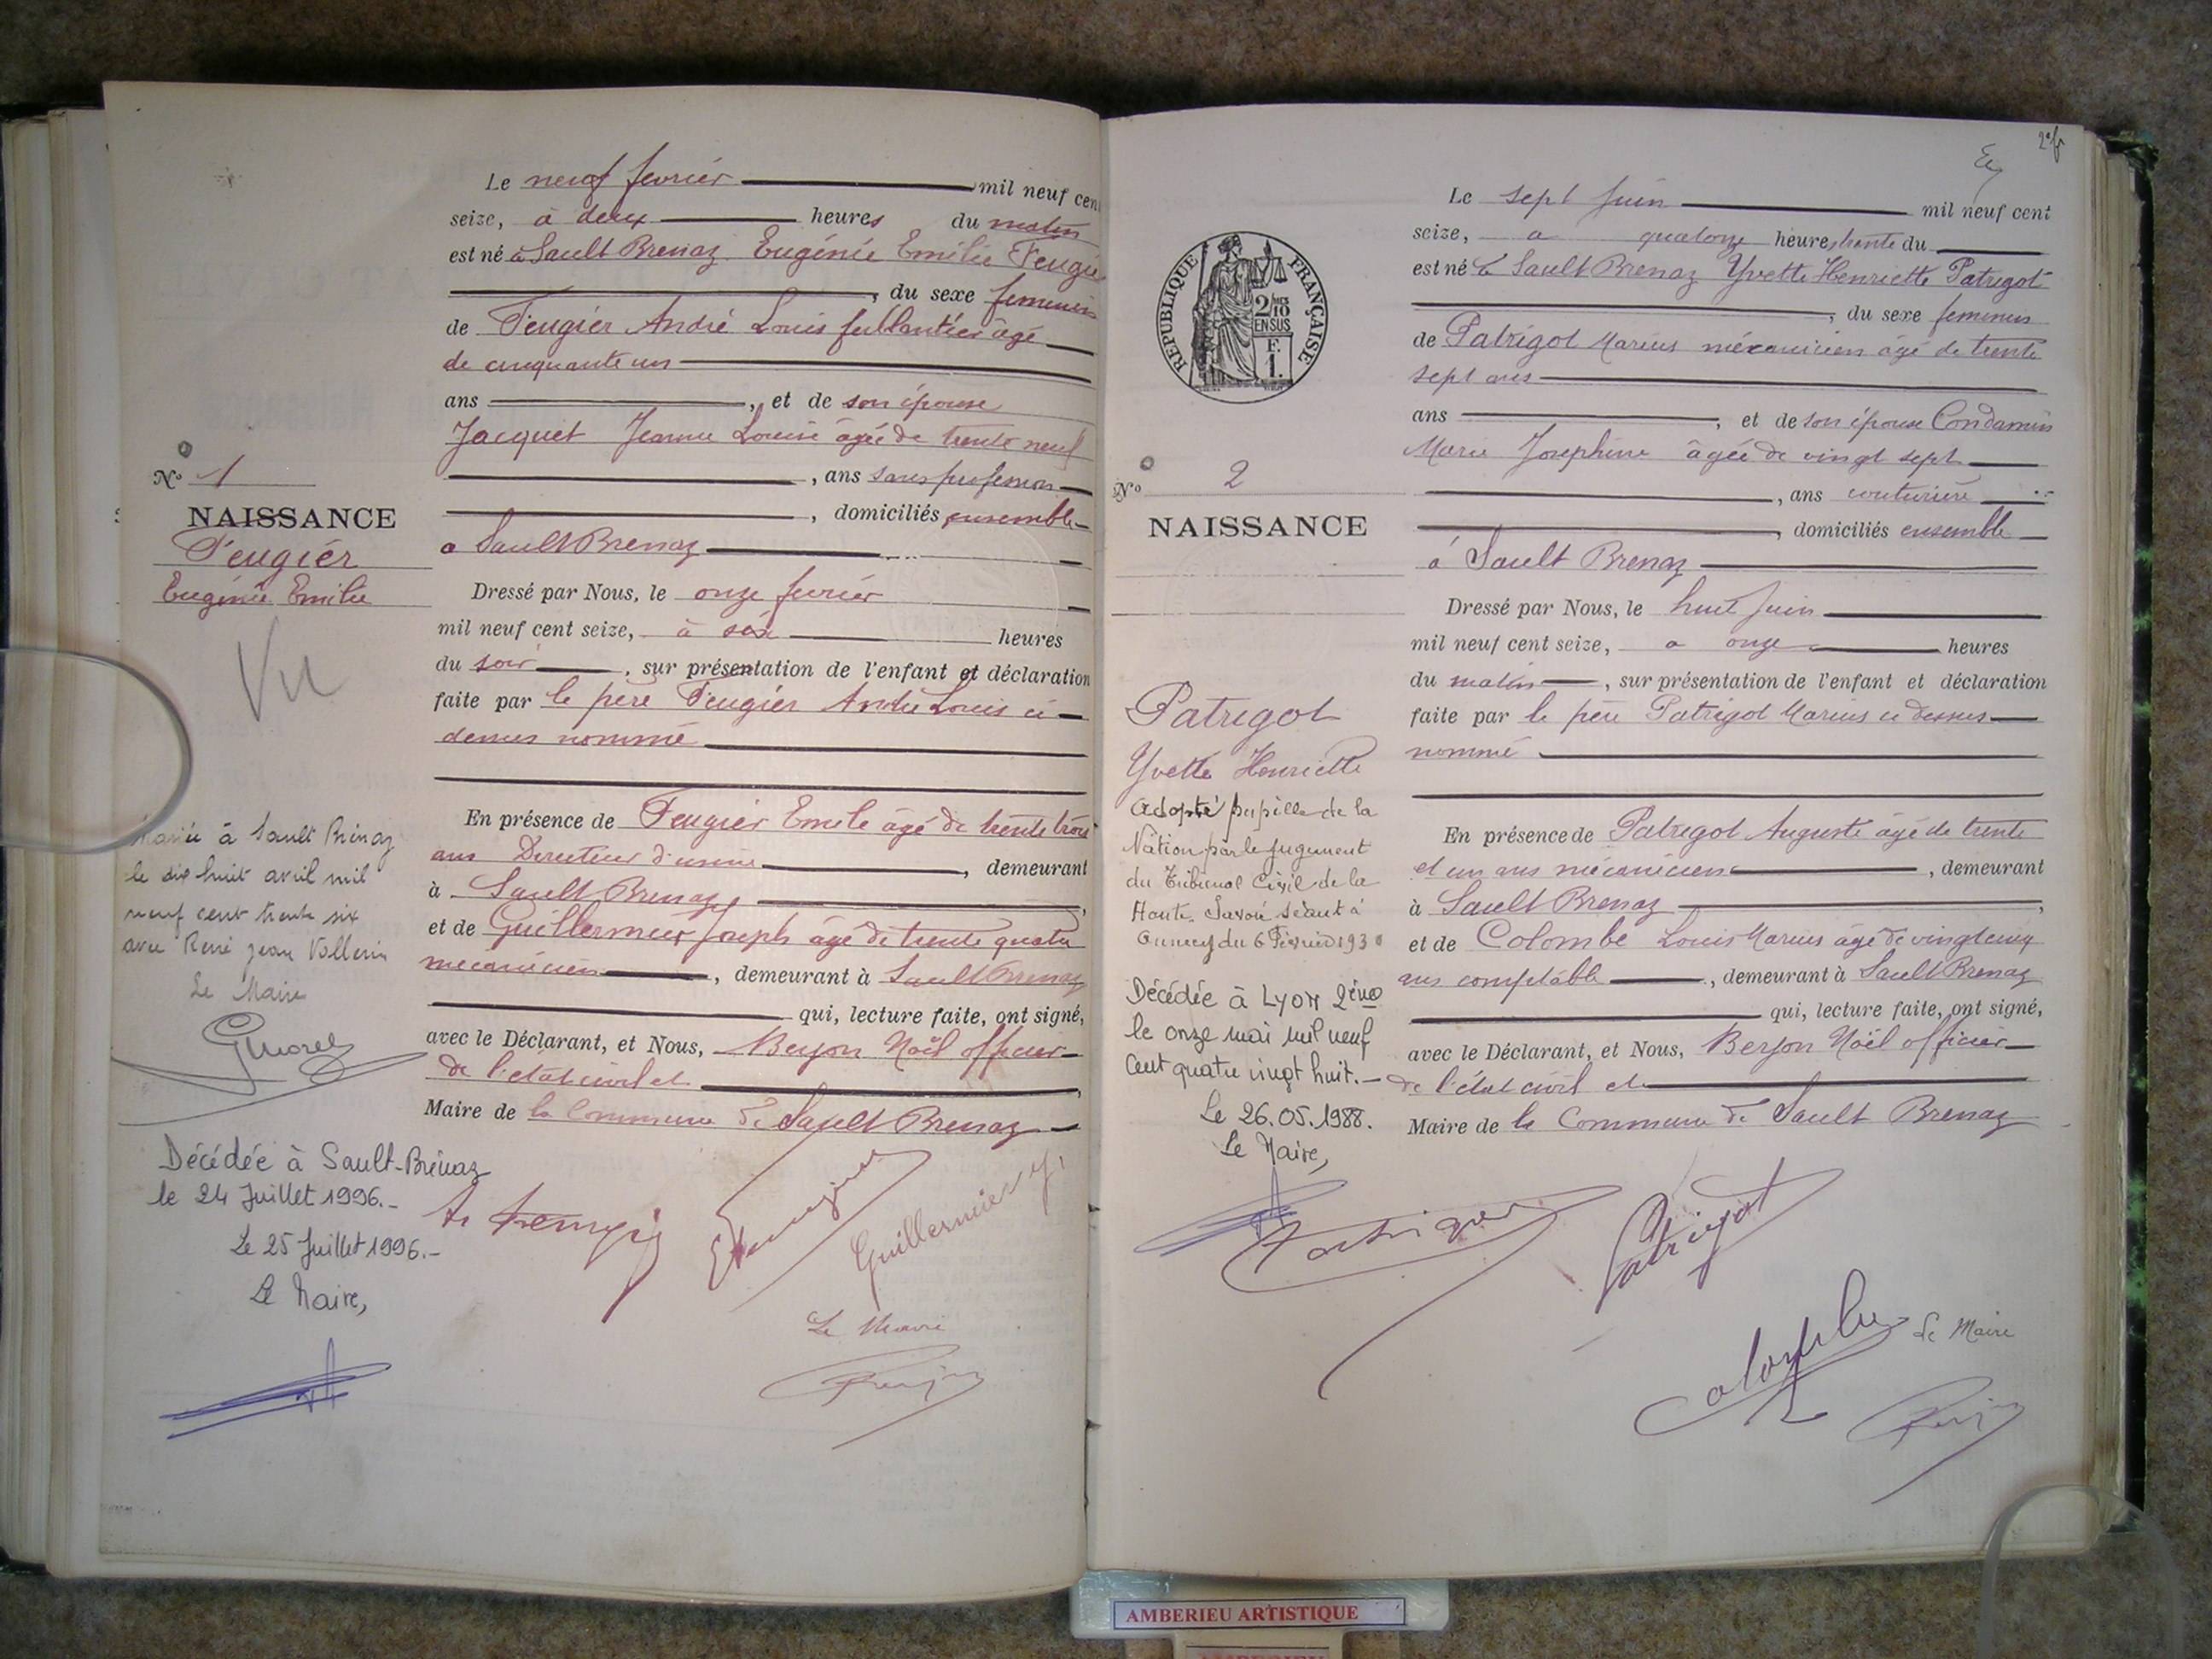 Le neuf fevrier mil neuf cent
seize, à deux heures du matin
est né à Sault Brenaz Eugénie Emilie Feugier
, du sexe feminin
de Feugier André Louis ferblantier âgé
de cinquante un
ans , et de son épouse
Jacquet Jeanne Louise âgée de trente neuf
, ans sans profession
, domiciliés ensemble
a Sault Brenaz
Dressé par Nous, le onze fevrier
mil neuf cent seize, à six heures
du soir , sur présentation de l'enfant et déclaration
faite par le père Feugier André Louis ci
dessus nommé
En présence de Feugier Emile âgé de trente trois
ans Directeur d'usine , demeurant
à Sault Brenaz ,
et de Guillermier Joseph âgé de trente quatre
mecanicien , demeurant à Sault Brenaz
qui, lecture faite, ont signé,
avec le Déclarant, et Nous, Berjon Noël officier
de l'état civil et ,
Maire de la Commune de Sault Brenaz
Guillermier J.
Le Maire
N° 1
NAISSANCE
Feugier
Eugénie Emilie
Vu
Mariée à Sault Brénaz
le dix huit avril mil
neuf cent trente six
avec René Jean Vallerin
Le Maire
Décédée à Sault-Brénaz
le 24 Juillet 1996.-
Le 25 Juillet 1996.-
Le Maire,
RÉPUBLIQUE FRANÇAISE
2/10
EN SUS
F.
1.
N° 2
NAISSANCE
Patrigot
Yvette Henriette
Adopté pupille de la
Nation par le jugement
du Tribunal Civil de la
Haute Savoie séant à
Annecy du 6 Février 1930
Décédée à Lyon 2ème
le onze mai mil neuf
cent quatre vingt huit.-
Le 26.05.1988.
Le Maire,
Le sept Juin mil neuf cent
seize, a quatorze heures trente du
est né à Sault Brenaz Yvette Henriette Patrigot
, du sexe feminin
de Patrigot Marius mécanicien âgé de trente
sept ans
ans , et de son épouse Condamin
Marie Josephine âgée de vingt sept
, ans couturière
, domiciliés ensemble
à Sault Brenaz
Dressé par Nous, le huit Juin
mil neuf cent seize, a onze heures
du matin , sur présentation de l'enfant et déclaration
faite par le père Patrigot Marius ci dessus
nommé
En présence de Patrigot Auguste âgé de trente
et un ans mécanicien , demeurant
à Sault Brenaz ,
et de Colombe Louis Marius âgé de vingt cinq
ans comptable , demeurant à Sault Brenaz
qui, lecture faite, ont signé,
avec le Déclarant, et Nous, Berjon Noël officier
de l'état civil et
Maire de la Commune de Sault Brenaz
Patrigot
Le Maire
AMBERIEU ARTISTIQUE